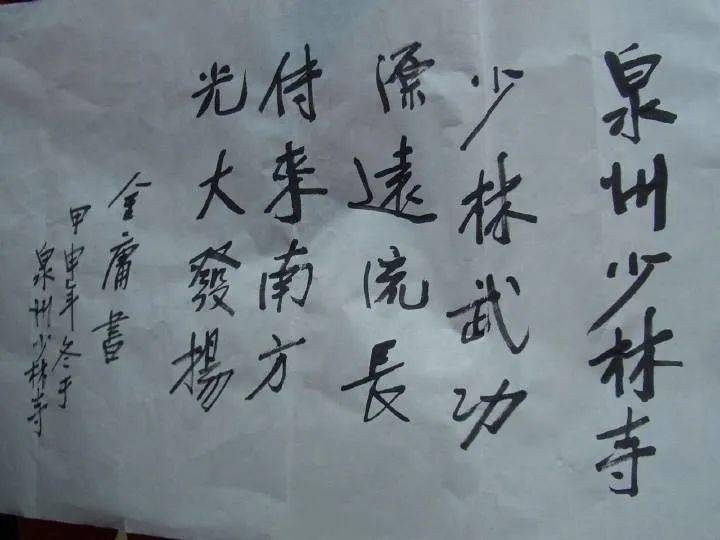 泉州少林寺
少林武功
源遠流長
傳来南方
光大發揚
金庸書
甲申年冬于
泉州少林寺